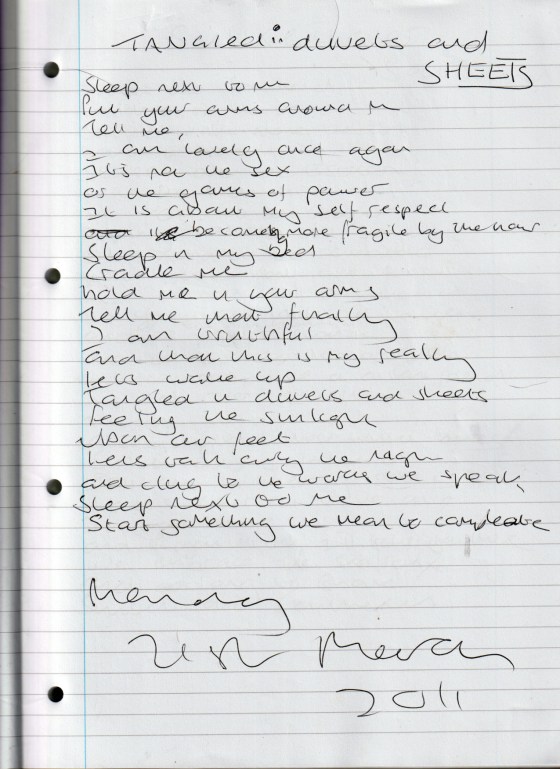 TANGLED :: duvets and
SHEETS
Sleep next to me
Put your arms around me
Tell me,
I am lovely once again
It is not the sex
or the games of power
It is about my self respect
becoming more fragile by the hour
Sleep in my bed
Cradle me
hold me in your arms
Tell me that finally
I am truthful
and that this is my reality
lets wake up
Tangled in duvets and sheets
feeling the sunlight
Upon our feet
Lets talk away the night
and cling to the words we speak,
Sleep next to me
Start something we mean to compleate
Monday
21st March
2011